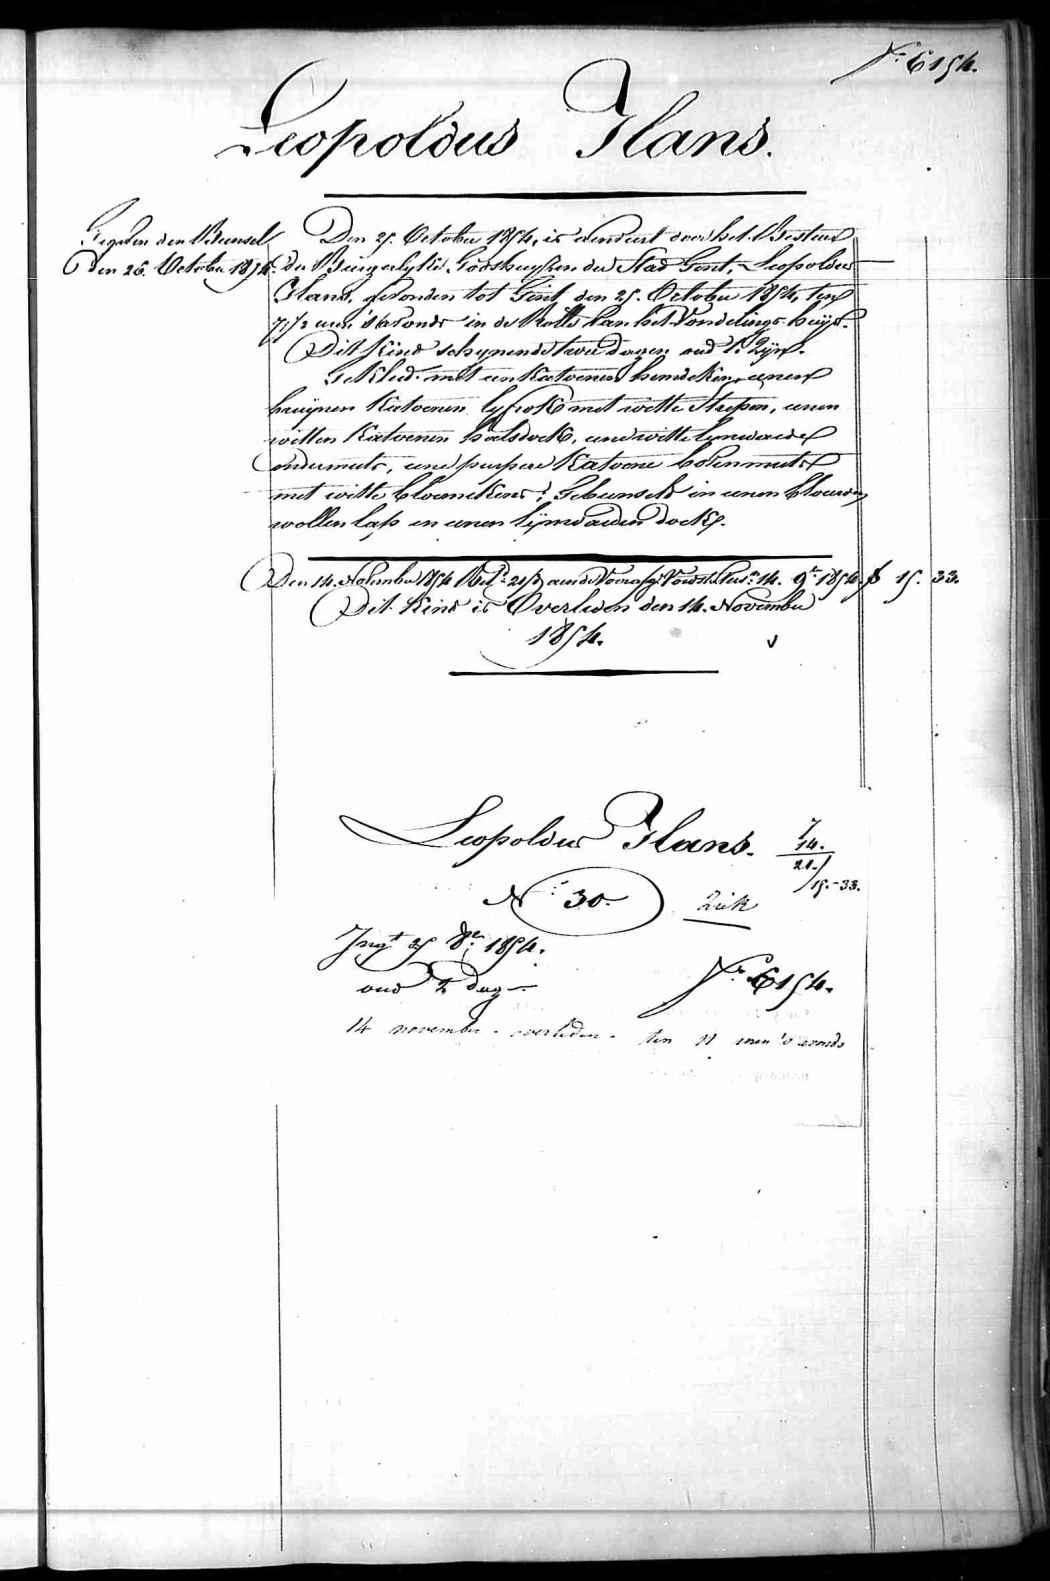 Fº 6154.
Leopoldus Ilans.
Gegeven den Bunsel
den 26. October 1854.
Den 25. October 1854, is aenveert door het Bestuer
der Burgerlyke Godshuyzen der Stad Gent, Leopoldus
Ilans, gevonden tot Gent, den 25. October 1854, ten
7 1/2 uren 's avonds in de Rolle van het Vondelings huys.
Dit Kind schynende twee dagen oud te Zyn.
Gekleed met een Katoenen hemdeken, eenen
bruynen Katoenen lyfrok met witte Strepen, eenen
witten Katoenen halsdoek, eene witte lynwaede
ondermuts, eene purpere Katoene bovenmuts
met witte bloemekens, Gebunseld in eenen blouwen
wollen lap en eenen lynwaeden doek.
Den 14. November 1854 14. 9bre 1854. f 15. 33.
Dit Kind is Overleden den 14. November
1854.
Leopoldus Ilans.
7
14.
21.
15.-33.
Nº 30.
Ziek
Ingt 25 8bre 1854.
oud 2 dag
Fº 6154.
14 november. overleden. ten 11 uren 's avonds